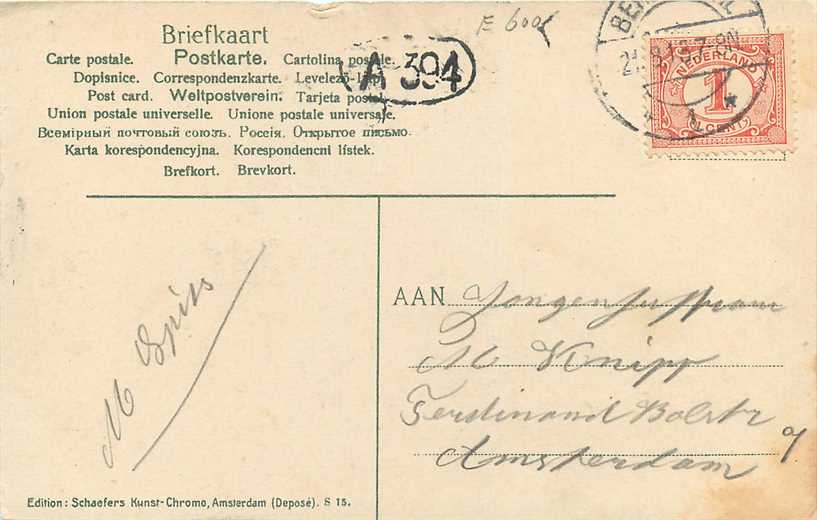 Briefkaart
Carte postale. Postkarte. Cartolina postale.
Dopisnice. Correspondenzkarte. Levelező-lap
Post card. Weltpostverein. Tarjeta postal
Union postale universelle. Unione postale universale.
Всемірный почтовый союзъ. Россія. Открытое письмо.
Karta korespondencyjna. Korespondencni lístek.
Brefkort. Brevkort.
A 394
NEDERLAND
1
CENT
M Spiss
AAN Jongejuffrouw
M Knipp
Ferdinand Bolstr
Amsterdam
Edition: Schaefers Kunst-Chromo, Amsterdam (Deposé). S 15.